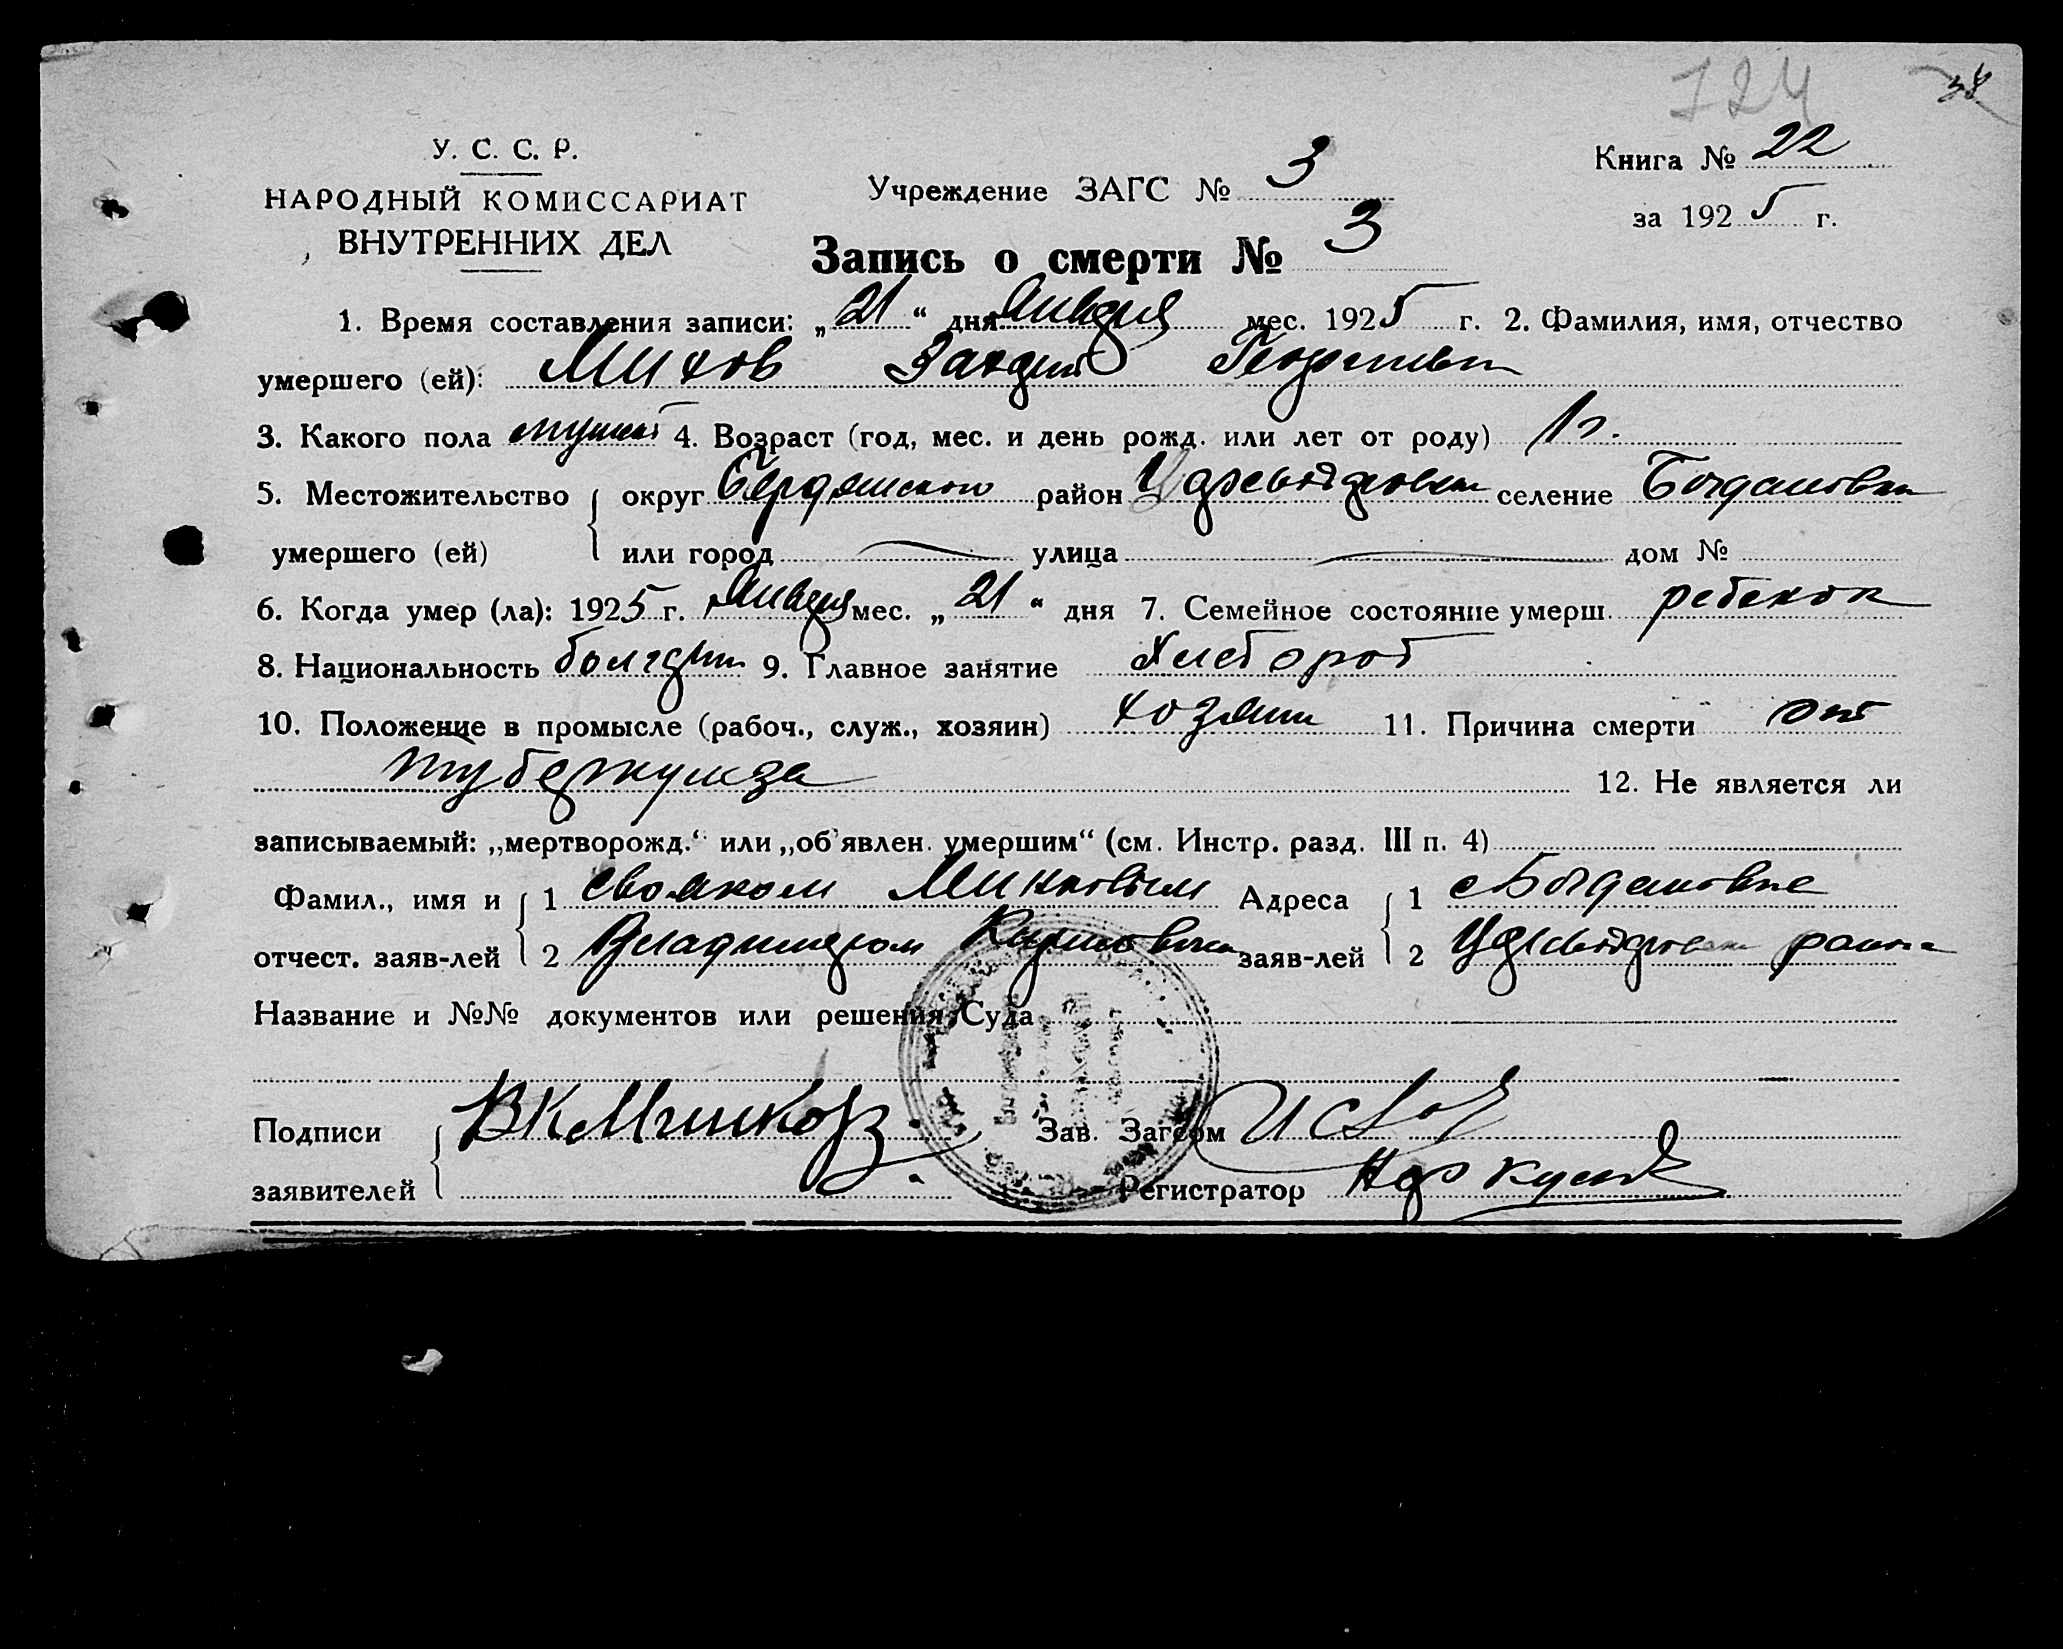 724 38
У. С. С. Р.
НАРОДНЫЙ КОМИССАРИАТ
ВНУТРЕННИХ ДЕЛ
Учреждение ЗАГС № 3
Книга № 22
за 1925 г.
Запись о смерти № 3
1. Время составления записи: „21“ дня Января мес. 1925 г. 2. Фамилия, имя, отчество
умершего (ей): Михов Георгиевич
3. Какого пола мужской 4. Возраст (год, мес. и день рожд. или лет от роду) 1 г.
5. Местожительство округ Бердянского район Цареводаровский селение Богдановка
умершего (ей) или город улица дом №
6. Когда умер (ла): 1925 г. Января мес. „21“ дня 7. Семейное состояние умерш. ребенок
8. Национальность болгарин 9. Главное занятие Хлебороб
10. Положение в промысле (рабоч., служ., хозяин) хозяин 11. Причина смерти от
туберкулеза 12. Не является ли
записываемый: „мертворожд.“ или „об'явлен. умершим“ (см. Инстр. разд. III п. 4)
Фамил., имя и 1 свояком Минковым Адреса 1 с Богдановке
отчест. заяв-лей 2 Владимиром Кириловичем заяв-лей 2 района
Название и №№ документов или решения Суда
Подписи ВКМинков Зав. Загсом
заявителей Регистратор